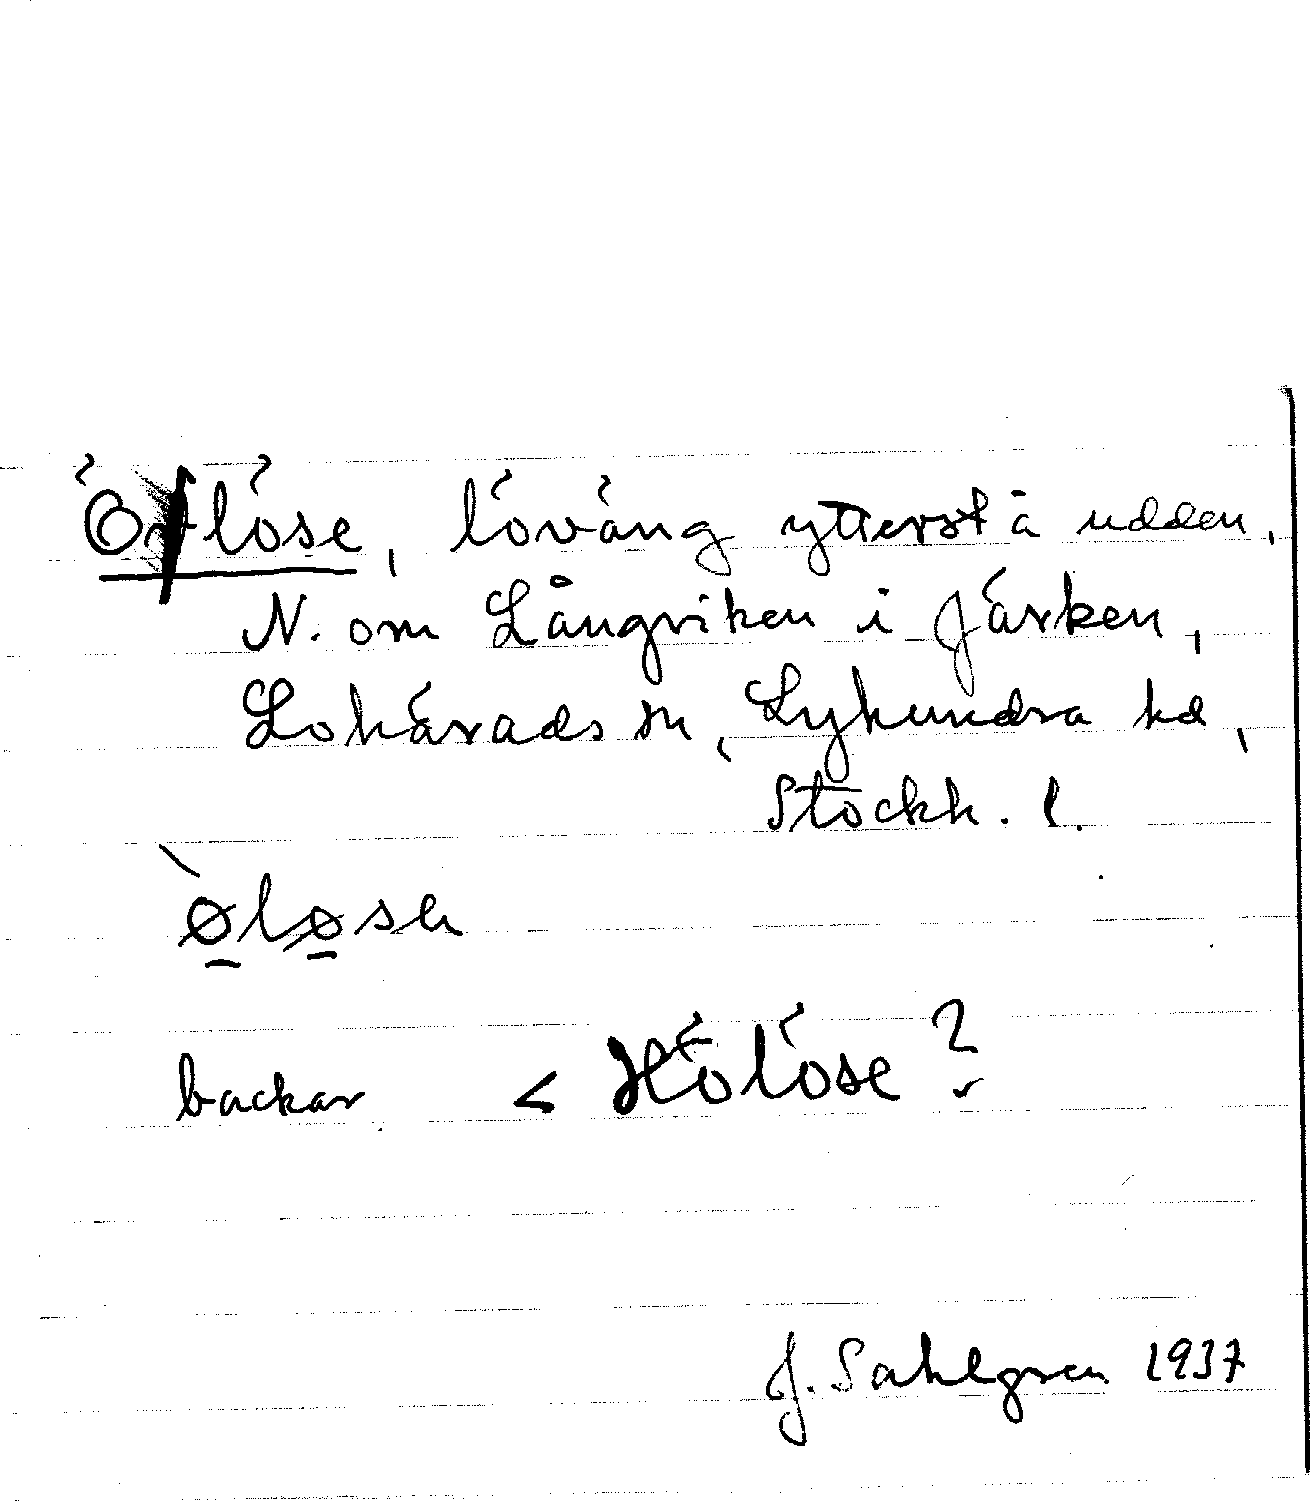 Ölöse, löväng ytterst å udden,
N. om Långviken i Järken,
Lohärads sn, Lyhundra hd,
Stockh. l.
`ø̱lø̱sen
backar < Hölöse?
J. Sahlgren 1937